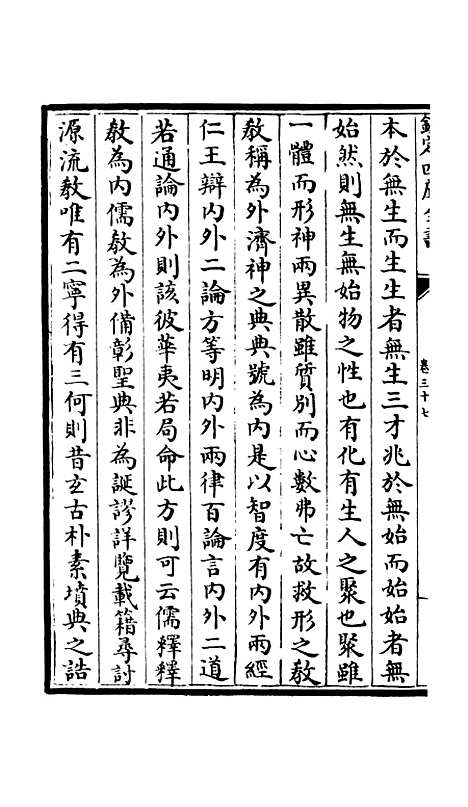 欽定四庫全書
卷三十七
本於無生而生生者無生三才兆於無始而始始者無
始然則無生無始物之性也有化有生人之聚也聚雖
一體而形神兩異散雖質别而心數弗亡故救形之敎
敎稱為外濟神之典典號為内是以智度有内外兩經
仁王辯内外二論方等明内外兩律百論言内外二道
若通論内外則該彼華夷若局命此方則可云儒釋釋
敎為内儒敎為外備彰聖典非為誕謬詳覽載籍尋討
源流敎唯有二寧得有三何則昔玄古朴素墳典之誥